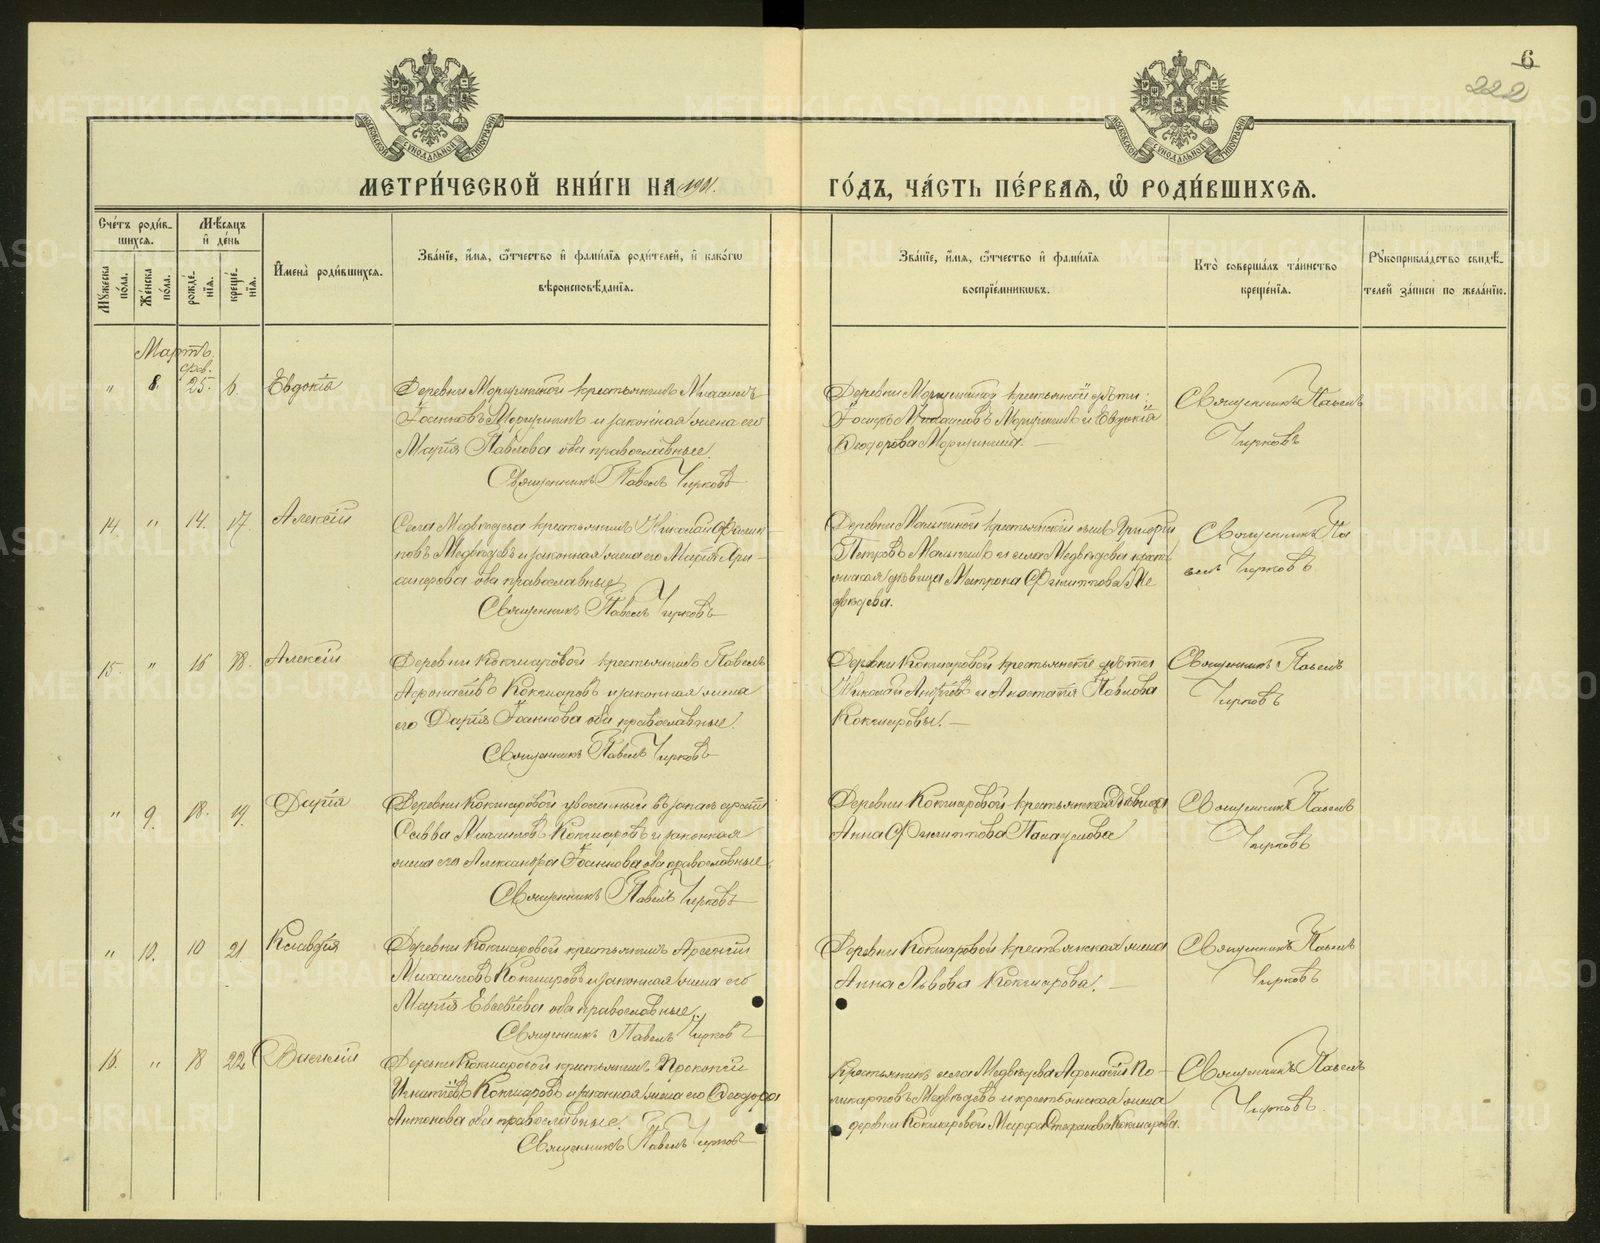 6
222
МОСКОВСКОЙ СѴНОДАЛЬНОЙ ТИПОГРАФІИ
МОСКОВСКОЙ СѴНОДАЛЬНОЙ ТИПОГРАФІИ
МЕТРИ́ЧЕСКОЙ КНИ́ГИ НА 1901.
ГО́ДЪ, ЧА́СТЬ ПЕ́РВАѦ, Ѡ҆ РОДИ́ВШИХСѦ.
Сче́тъ роди́в-
шихсѧ.
Мꙋ́жеска по́ла.
Же́нска по́ла.
Мѣ́сѧцъ и҆ де́нь
рожде́-нїѧ.
креще́-нїѧ.
И҆мена̀ роди́вшихсѧ.
Зва́нїе, и҆́мѧ, ѻ҆́тчество и҆ фами́лїѧ роди́телей, и҆ како́гѡ
вѣроисповѣ́данїѧ.
Зва́нїе, и҆́мѧ, ѻ҆́тчество и҆ фами́лїѧ
воспрїе́мникѡвъ.
Кто̀ соверша́лъ та́инство
креще́нїѧ.
Рꙋкоприкла́дство свидѣ́-
телей за́писи по жела́нїю.
Мартъ.
фев.
" 8. 25. 6. Евдокія
Деревни Моршининой крестьянинъ
Іоанновъ Моршининъ и законная жена его
Марія Павлова оба православные.
Священникъ Павелъ Чирковъ
Деревни Моршининой крестьянскіе дѣти:
Іосифъ Моршининъ и Евдокія
Ѳеодорова Моршинины. —
Священникъ Павелъ
Чирковъ
14. " 14. 17. Алексій
Села Медвѣдева крестьянинъ Николай Филип-
повъ Медвѣдевъ и законная жена его Марія
оба православные
Священникъ Павелъ Чирковъ
Деревни крестьянскій сынъ Григорій
Петровъ и села Медвѣдева крестьян-
ская дѣвица Матрона Филиппова Ме-
двѣдева.
Священникъ Па
велъ Чирковъ
15. " 16 18. Алексій
Деревни Кокшаровой крестьянинъ Павелъ
Кокшаровъ и законная жена
его Дарія Іоаннова оба православные.
Священникъ Павелъ Чирковъ
Деревни Кокшаровой крестьянскіе дѣти
Николай Андреевъ и Анастасія Павлова
Кокшаровы. —
Священникъ Павелъ
Чирковъ
" 9. 18. 19. Дарія
Деревни Кокшаровой уволенный въ запасъ арміи
Савва Михайловъ Кокшаровъ и законная
жена его Александра Іоаннова оба православные
Священникъ Павелъ Чирковъ
Деревни Кокшаровой крестьянская дѣвица
Анна Филиппова
Священникъ Павелъ
Чирковъ
" 10. 10 21. Клавдія
Деревни Кокшаровой крестьянинъ Арсеній
Михайловъ Кокшаровъ и законная жена его
Марія Евсевіева оба православные.
Священникъ Павелъ Чирковъ
Деревни Кокшаровой крестьянская жена
Анна Львова Кокшарова. —
Священникъ Павелъ
Чирковъ
16. " 18 22 Василій
Деревни Кокшаровой крестьянинъ Прокопій
Игнатіевъ Кокшаровъ и законная жена его Ѳеодора
Антонова оба православные.
Священникъ Павелъ Чирковъ
Крестьянинъ села Медвѣдева Афанасій По-
ликарповъ Медвѣдевъ и крестьянская жена
деревни Кокшаровой Марѳа Стефанова Кокшарова.
Священникъ Павелъ
Чирковъ.
METRIKI.GASO-URAL.RU